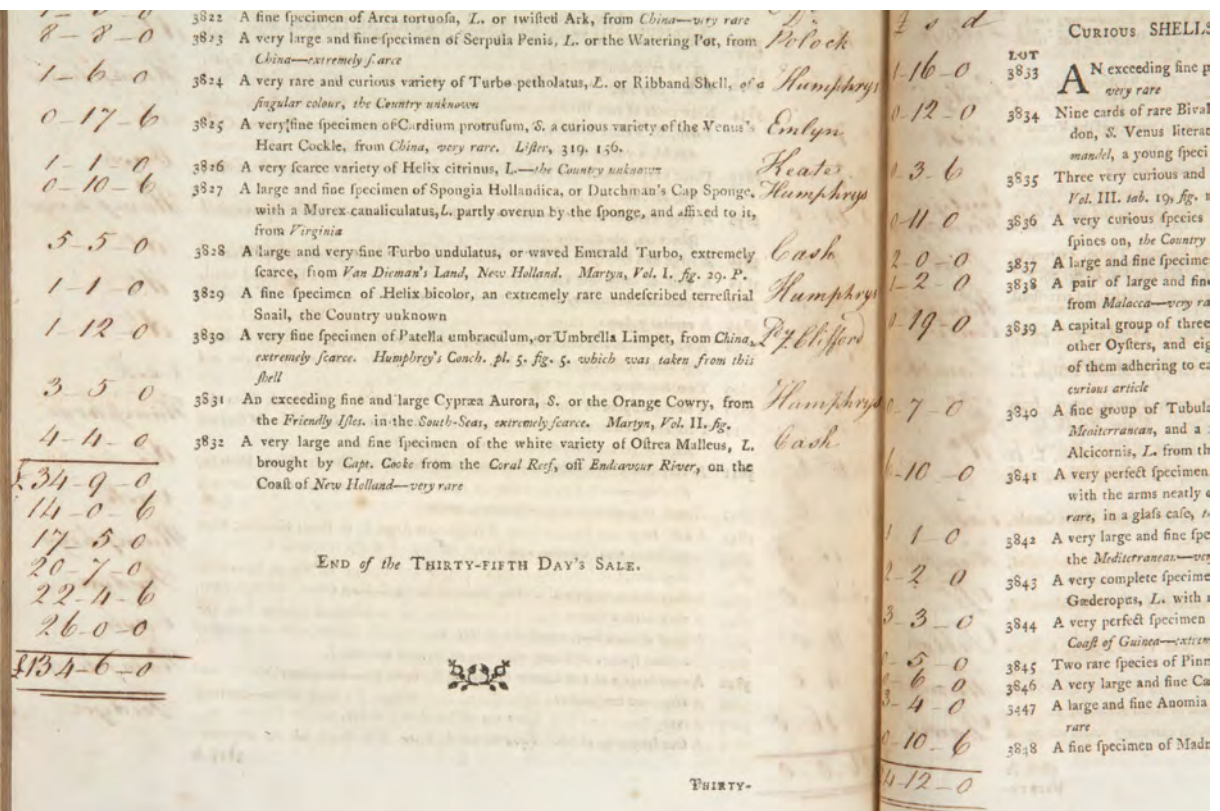 3822 A fine ſpecimen of Arca tortuoſa, L. or twiſted Ark, from China—very rare Do
8-8-0 3823 A very large and fine ſpecimen of Serpula Penis, L. or the Watering Pot, from Polock
China—extremely ſcarce
1-6-0 3824 A very rare and curious variety of Turbo petholatus, L. or Ribband Shell, of a Humphrys
ſingular colour, the Country unknown
0-17-6 3825 A very fine ſpecimen of Cardium protruſum, S. a curious variety of the Venus's Emlyn
Heart Cockle, from China, very rare. Liſter, 319. 156.
1-1-0 3826 A very ſcarce variety of Helix citrinus, L.—the Country unknown Keate
0-10-6 3827 A large and fine ſpecimen of Spongia Hollandica, or Dutchman's Cap Sponge, Humphrys
with a Murex canaliculatus, L. partly overun by the ſponge, and affixed to it,
from Virginia
5-5-0 3828 A large and very fine Turbo undulatus, or waved Emerald Turbo, extremely Cash
ſcarce, from Van Dieman's Land, New Holland. Martyn, Vol. I. fig. 29. P.
1-1-0 3829 A fine ſpecimen of Helix bicolor, an extremely rare undeſcribed terreſtrial Humphrys
Snail, the Country unknown
1-12-0 3830 A very fine ſpecimen of Patella umbraculum, or Umbrella Limpet, from China, Clifford
extremely ſcarce. Humphrey's Conch. pl. 5. fig. 5. which was taken from this
ſhell
3-5-0 3831 An exceeding fine and large Cypræa Aurora, S. or the Orange Cowry, from Humphrys
the Friendly Iſles. in the South-Seas, extremely ſcarce. Martyn, Vol. II. fig.
4-4-0 3832 A very large and fine ſpecimen of the white variety of Oſtrea Malleus, L. Cash
brought by Capt. Cooke from the Coral Reef, off Endeavour River, on the
Coaſt of New Holland—very rare
£34-9-0
14-0-6
17-5-0
20-7-0
22-4-6
26-0-0
£134-6-0
END of the THIRTY-FIFTH DAY'S SALE.
THIRTY-
£ s d
CURIOUS SHELLS
LOT
1-16-0 3833 AN exceeding fine p
very rare
0-12-0 3834 Nine cards of rare Bival
don, S. Venus literat
mandel, a young ſpeci
0-3-6 3835 Three very curious and
Vol. III. tab. 19, fig.
0-11-0 3836 A very curious ſpecies
ſpines on, the Country
2-0-0 3837 A large and fine ſpecime
1-2-0 3838 A pair of large and fine
from Malacca—very ra
0-19-0 3839 A capital group of three
other Oyſters, and eig
of them adhering to ea
curious article
0-7-0 3840 A fine group of Tubula
Mediterranean, and a
Alcicornis, L. from th
-10-0 3841 A very perfect ſpecimen
with the arms neatly
rare, in a glaſs caſe,
1-1-0 3842 A very large and fine ſpe
the Mediterranean—very
2-2-0 3843 A very complete ſpecime
Gæderopus, L. with
3-3-0 3844 A very perfect ſpecimen
Coaſt of Guinea—extrem
-5-0 3845 Two rare ſpecies of Pinn
-6-0 3846 A very large and fine Ca
3-4-0 3447 A large and fine Anomia
rare
0-10-6 3848 A fine ſpecimen of Madr
4-12-0